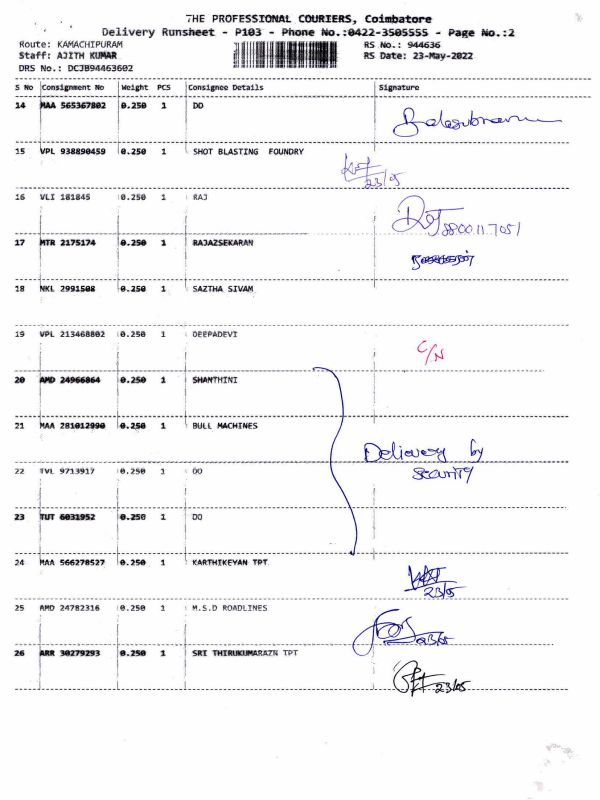 THE PROFESSIONAL COURIERS, Coimbatore
Delivery Runsheet - P103 - Phone No.:0422-3505555 - Page No.:2
Route: KAMACHIPURAM RS No.: 944636
Staff: AJITH KUMAR RS Date: 23-May-2022
DRS No.: DCJB94463602
S No Consignment No Weight PCS Consignee Details Signature
14 MAA 565367802 0.250 1 DO
15 VPL 938890459 0.250 1 SHOT BLASTING FOUNDRY
23/05
16 VLI 181845 0.250 1 RAJ
17 MTR 2175174 0.250 1 RAJAZSEKARAN
18 NKL 2991508 0.250 1 SAZTHA SIVAM
19 VPL 213468802 0.250 1 DEEPADEVI
C/N
20 AMD 24966864 0.250 1 SHANTHINI
21 MAA 281012990 0.250 1 BULL MACHINES
Delivery by
security
22 TVL 9713917 0.250 1 OO
23 TUT 6031952 0.250 1 DO
24 MAA 566278527 0.250 1 KARTHIKEYAN TPT
23/05
25 AMD 24782316 0.250 1 M.S.D ROADLINES
23/05
26 ARR 30279293 0.250 1 SRI THIRUKUMARAZN TPT
23/05